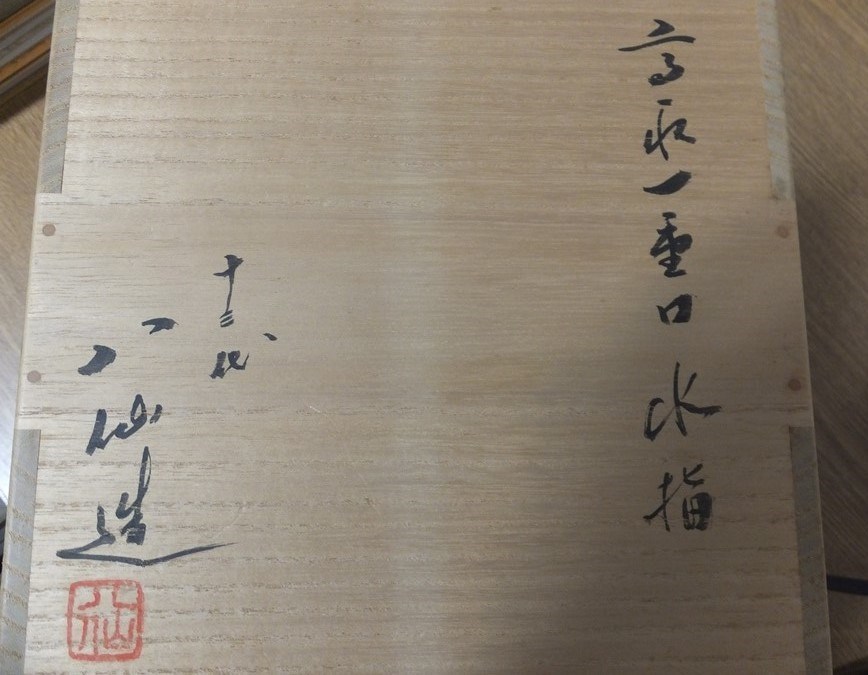 高取一重口水指
十三代
八仙造
仙